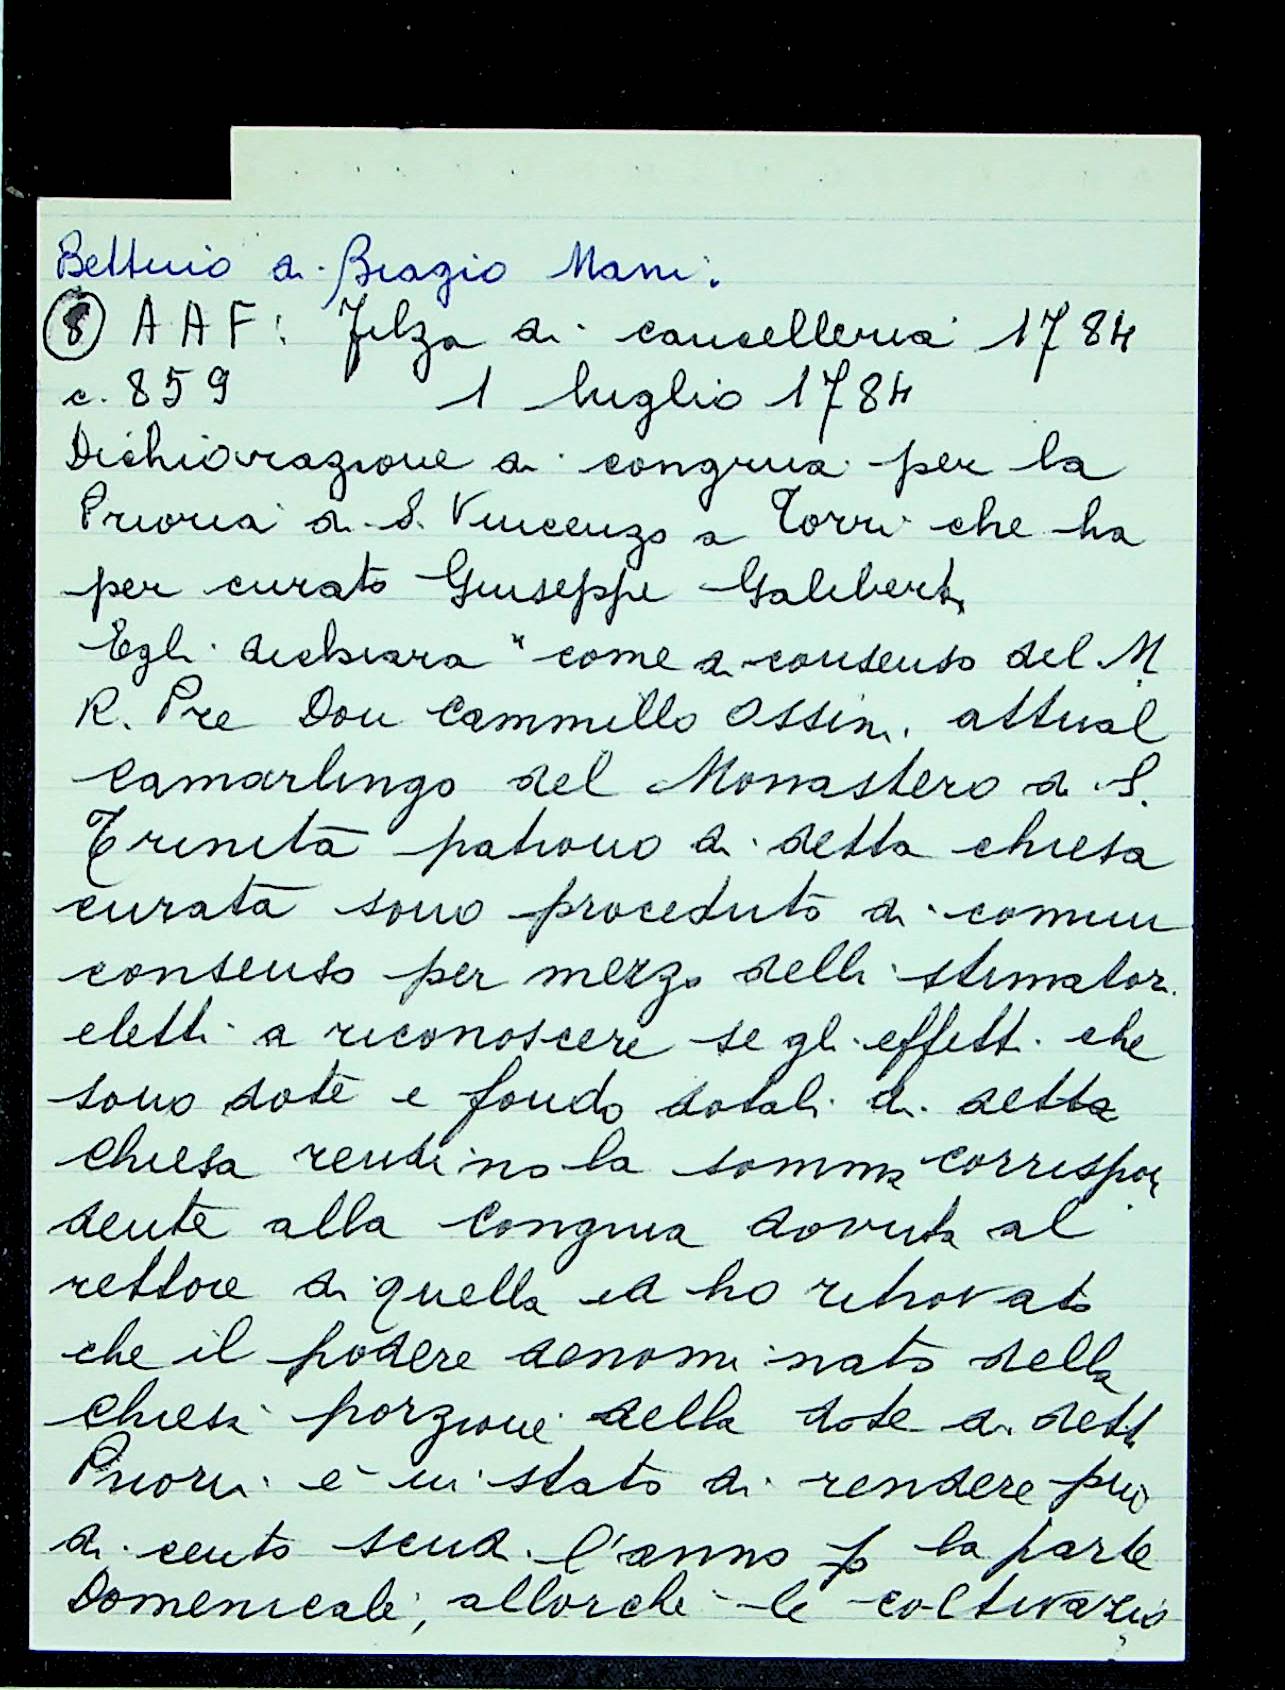 Bettino di Biagio Mani.
8 A A F: Filza di cancelleria 1784
c. 859 1 luglio 1784
Dichiarazione di congrua per la
Prioria di S. Vincenzo a Torri che ha
per curato Giuseppe Galiberti
Egli dichiara "come di consenso del M
R. Pre Don Cammillo Ossini attual
Camarlingo del Monastero di S.
Trinità patrono di detta chiesa
curata sono proceduto di comun
consenso per mezzo delli stimatori
eletti a riconoscere se gli effetti che
sono dote e fondo dotali di detta
Chiesa rendino la somma corrispon
dente alla Congrua dovuta al
rettore di quella ed ho ritrovato
che il podere denominato della
Chiesa porzione della dote di detta
Prioria è in stato di rendere più
di cento scudi l'anno p la parte
Domenicale, allorchè le coltivazio